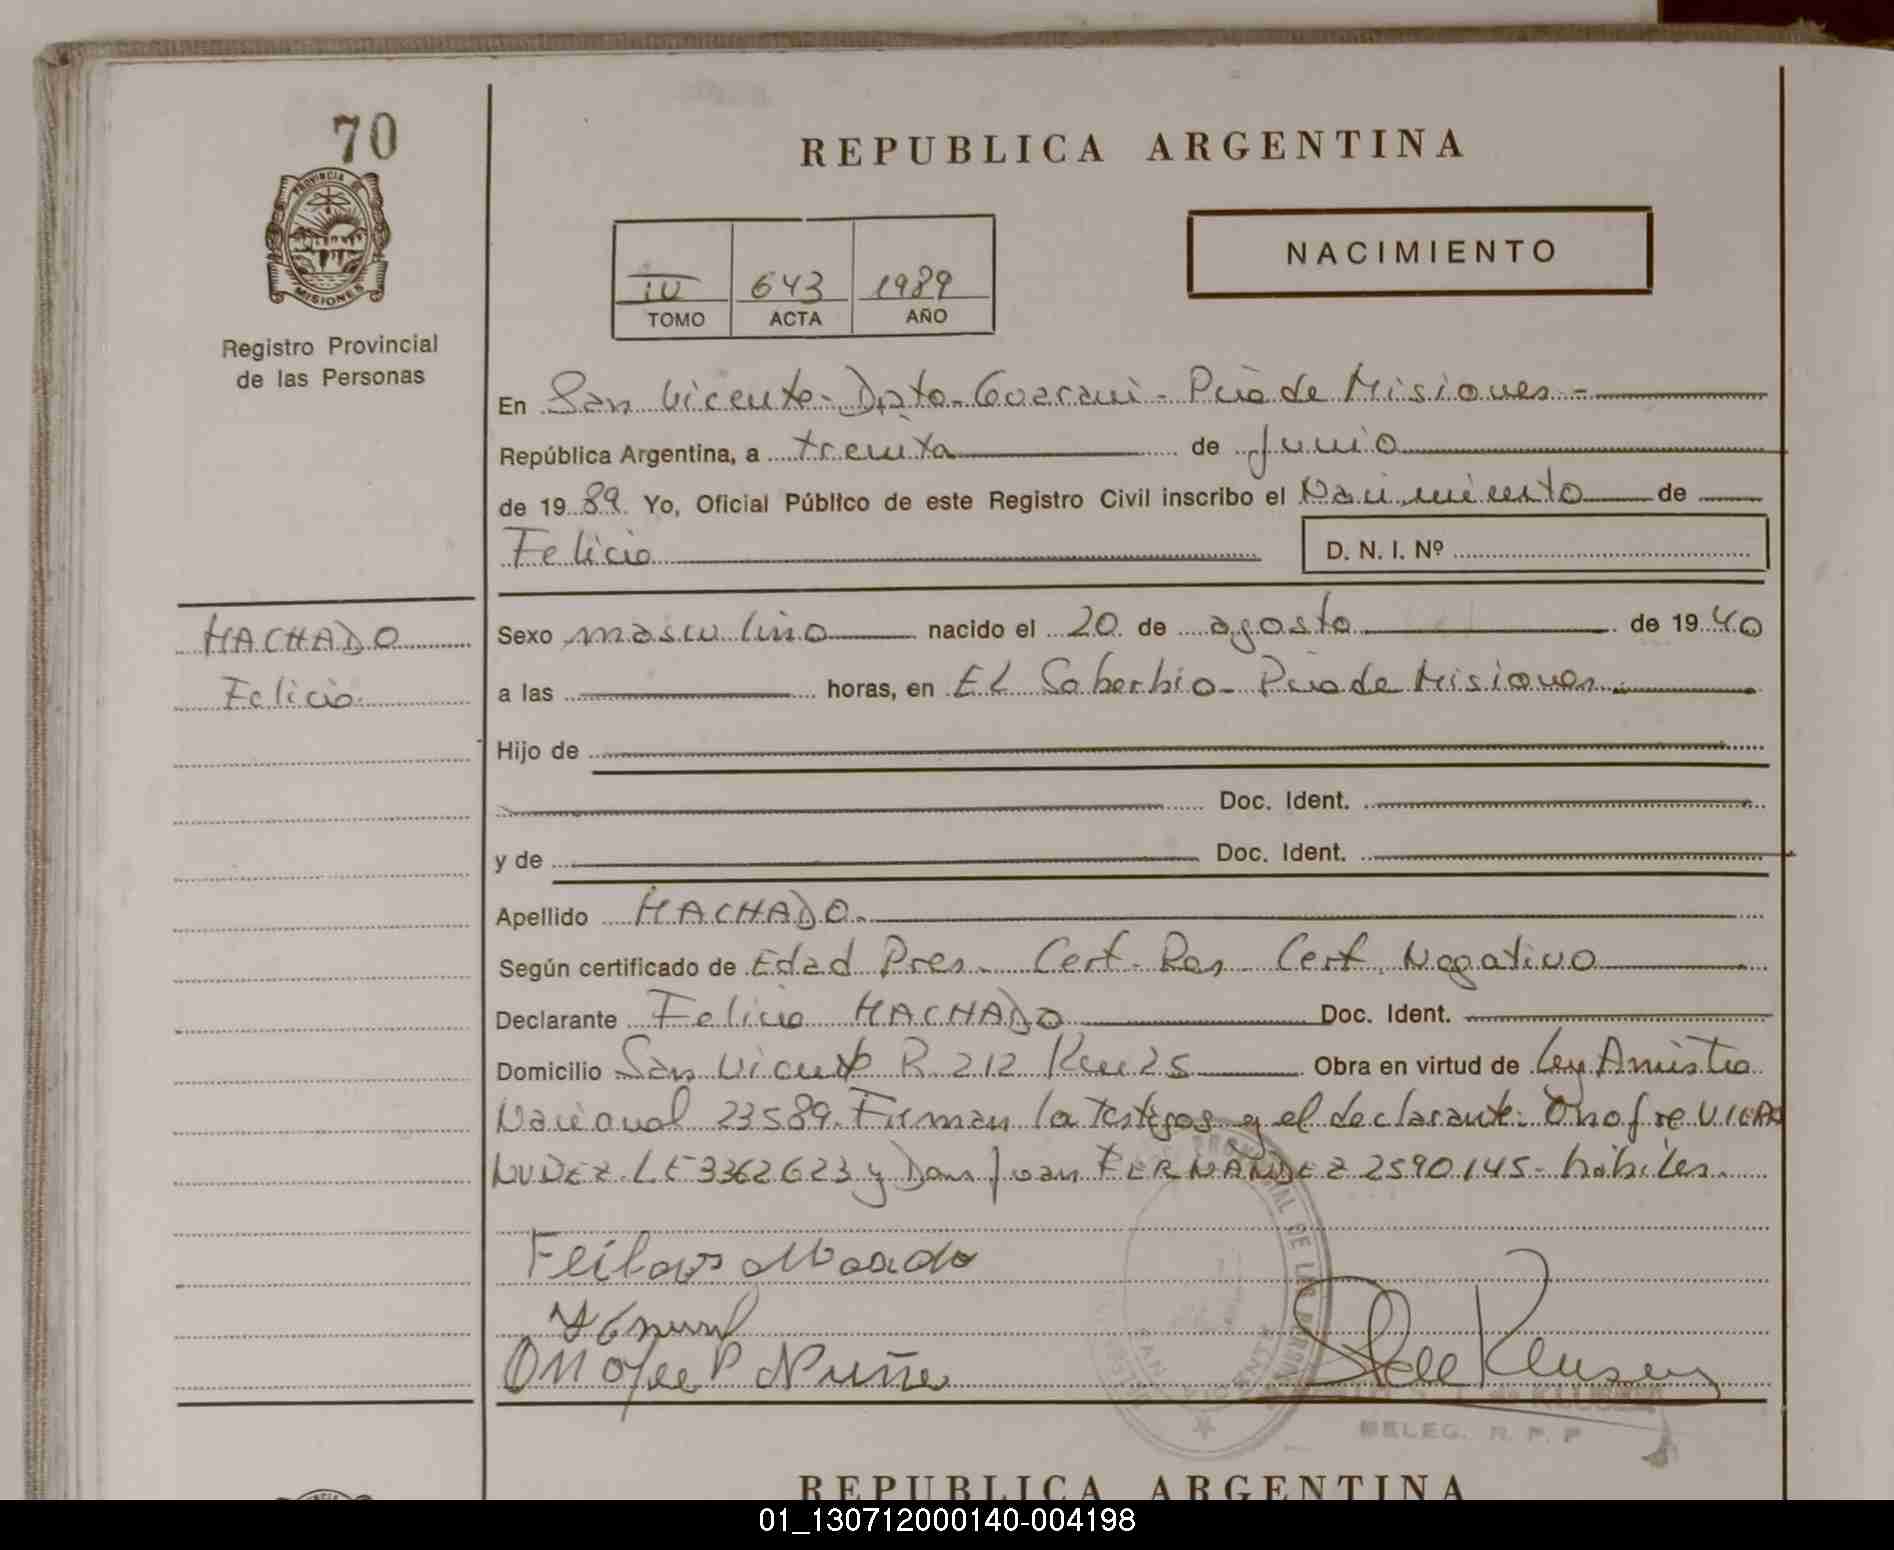 70
PROVINCIA DE
MISIONES
Registro Provincial
de las Personas
REPUBLICA ARGENTINA
NACIMIENTO
IV 643 1989
TOMO ACTA AÑO
En San Vicente - Dpto - Guarani - Pcia de Misiones -
República Argentina, a treinta de Junio
de 1989 Yo, Oficial Público de este Registro Civil inscribo el Nacimiento de
Felicio D. N. I. Nº
MACHADO
Felicio
Sexo masculino nacido el 20 de agosto de 1940
a las horas, en El Soberbio - Pcia de Misiones
Hijo de
Doc. Ident.
y de Doc. Ident.
Apellido MACHADO
Según certificado de Edad Pres. Cert. Res. Cert. Negativo
Declarante Felicio MACHADO Doc. Ident.
Domicilio San Vicente R 212 Km 25 Obra en virtud de Ley Amistia
Nacional 23589. Firman los Testigos y el declarante: Onofre VIERA
NUÑEZ LE 3362623 y Don Juan FERNANDEZ 2590145 - hábiles
Onofre P Nuñe
SAN VICENTE
DELEG. R. P. P
REPUBLICA ARGENTINA
01_130712000140-004198